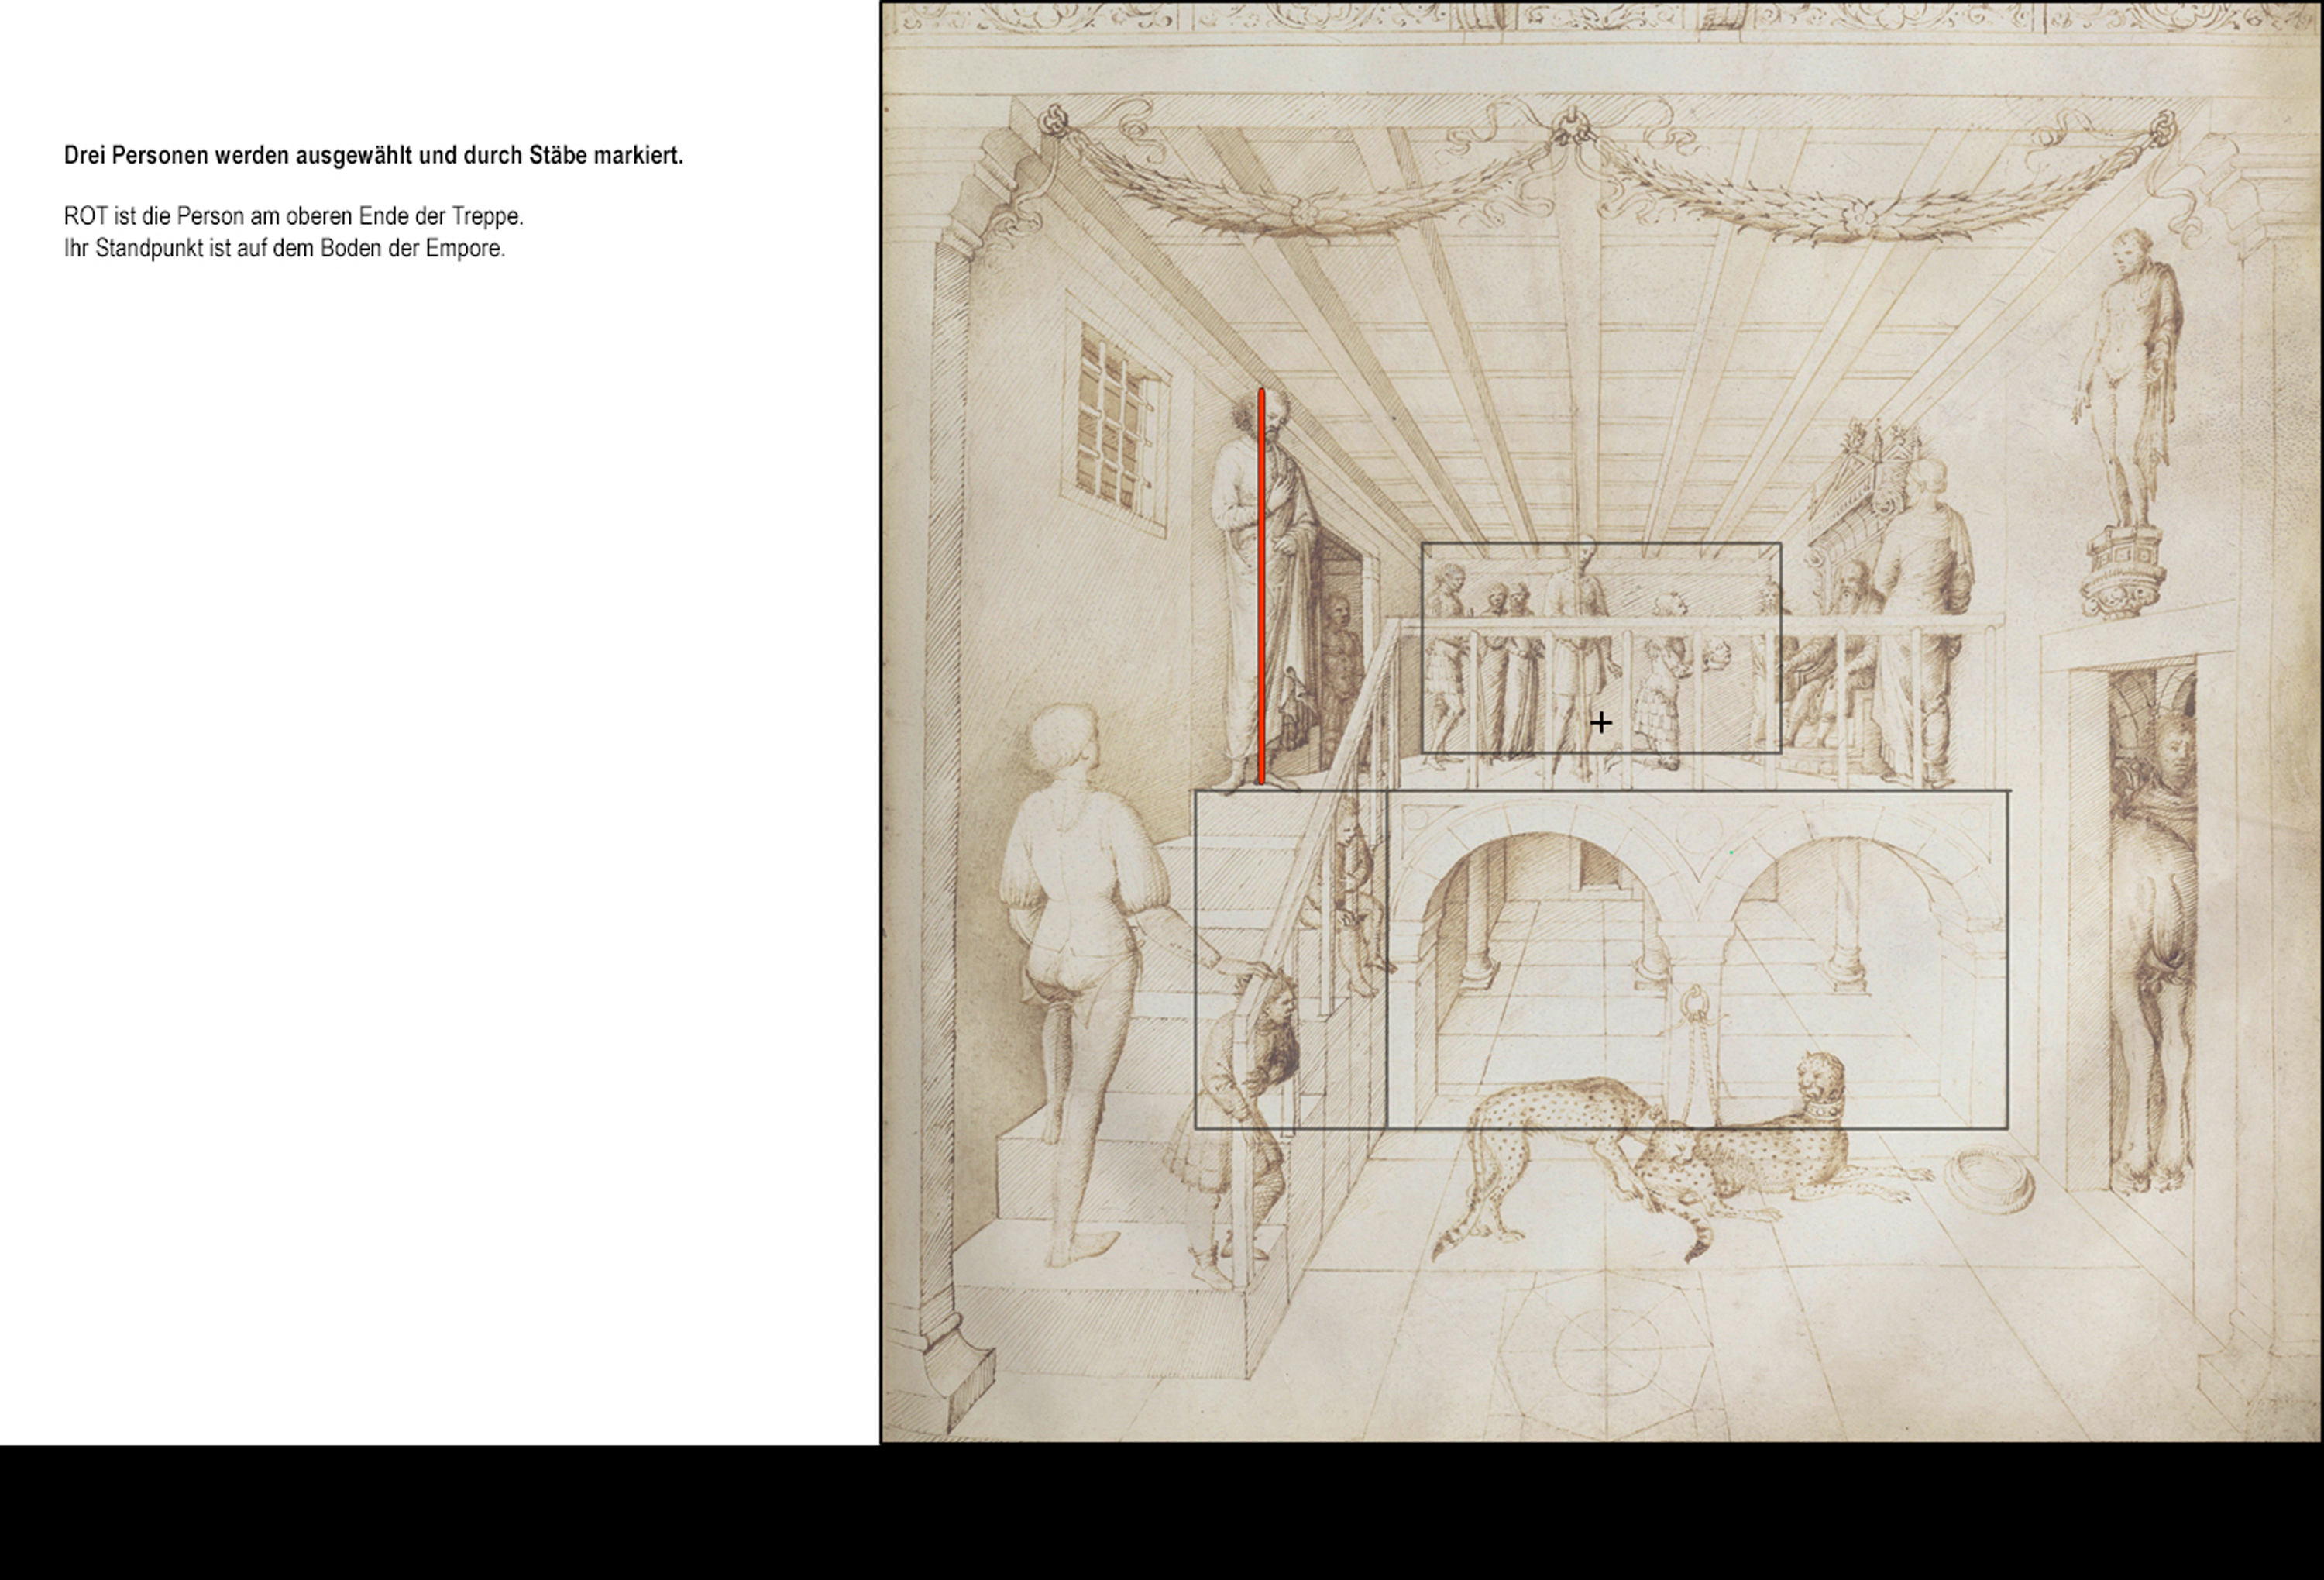 Drei Personen werden ausgewählt und durch Stäbe markiert.
ROT ist die Person am oberen Ende der Treppe.
Ihr Standpunkt ist auf dem Boden der Empore.